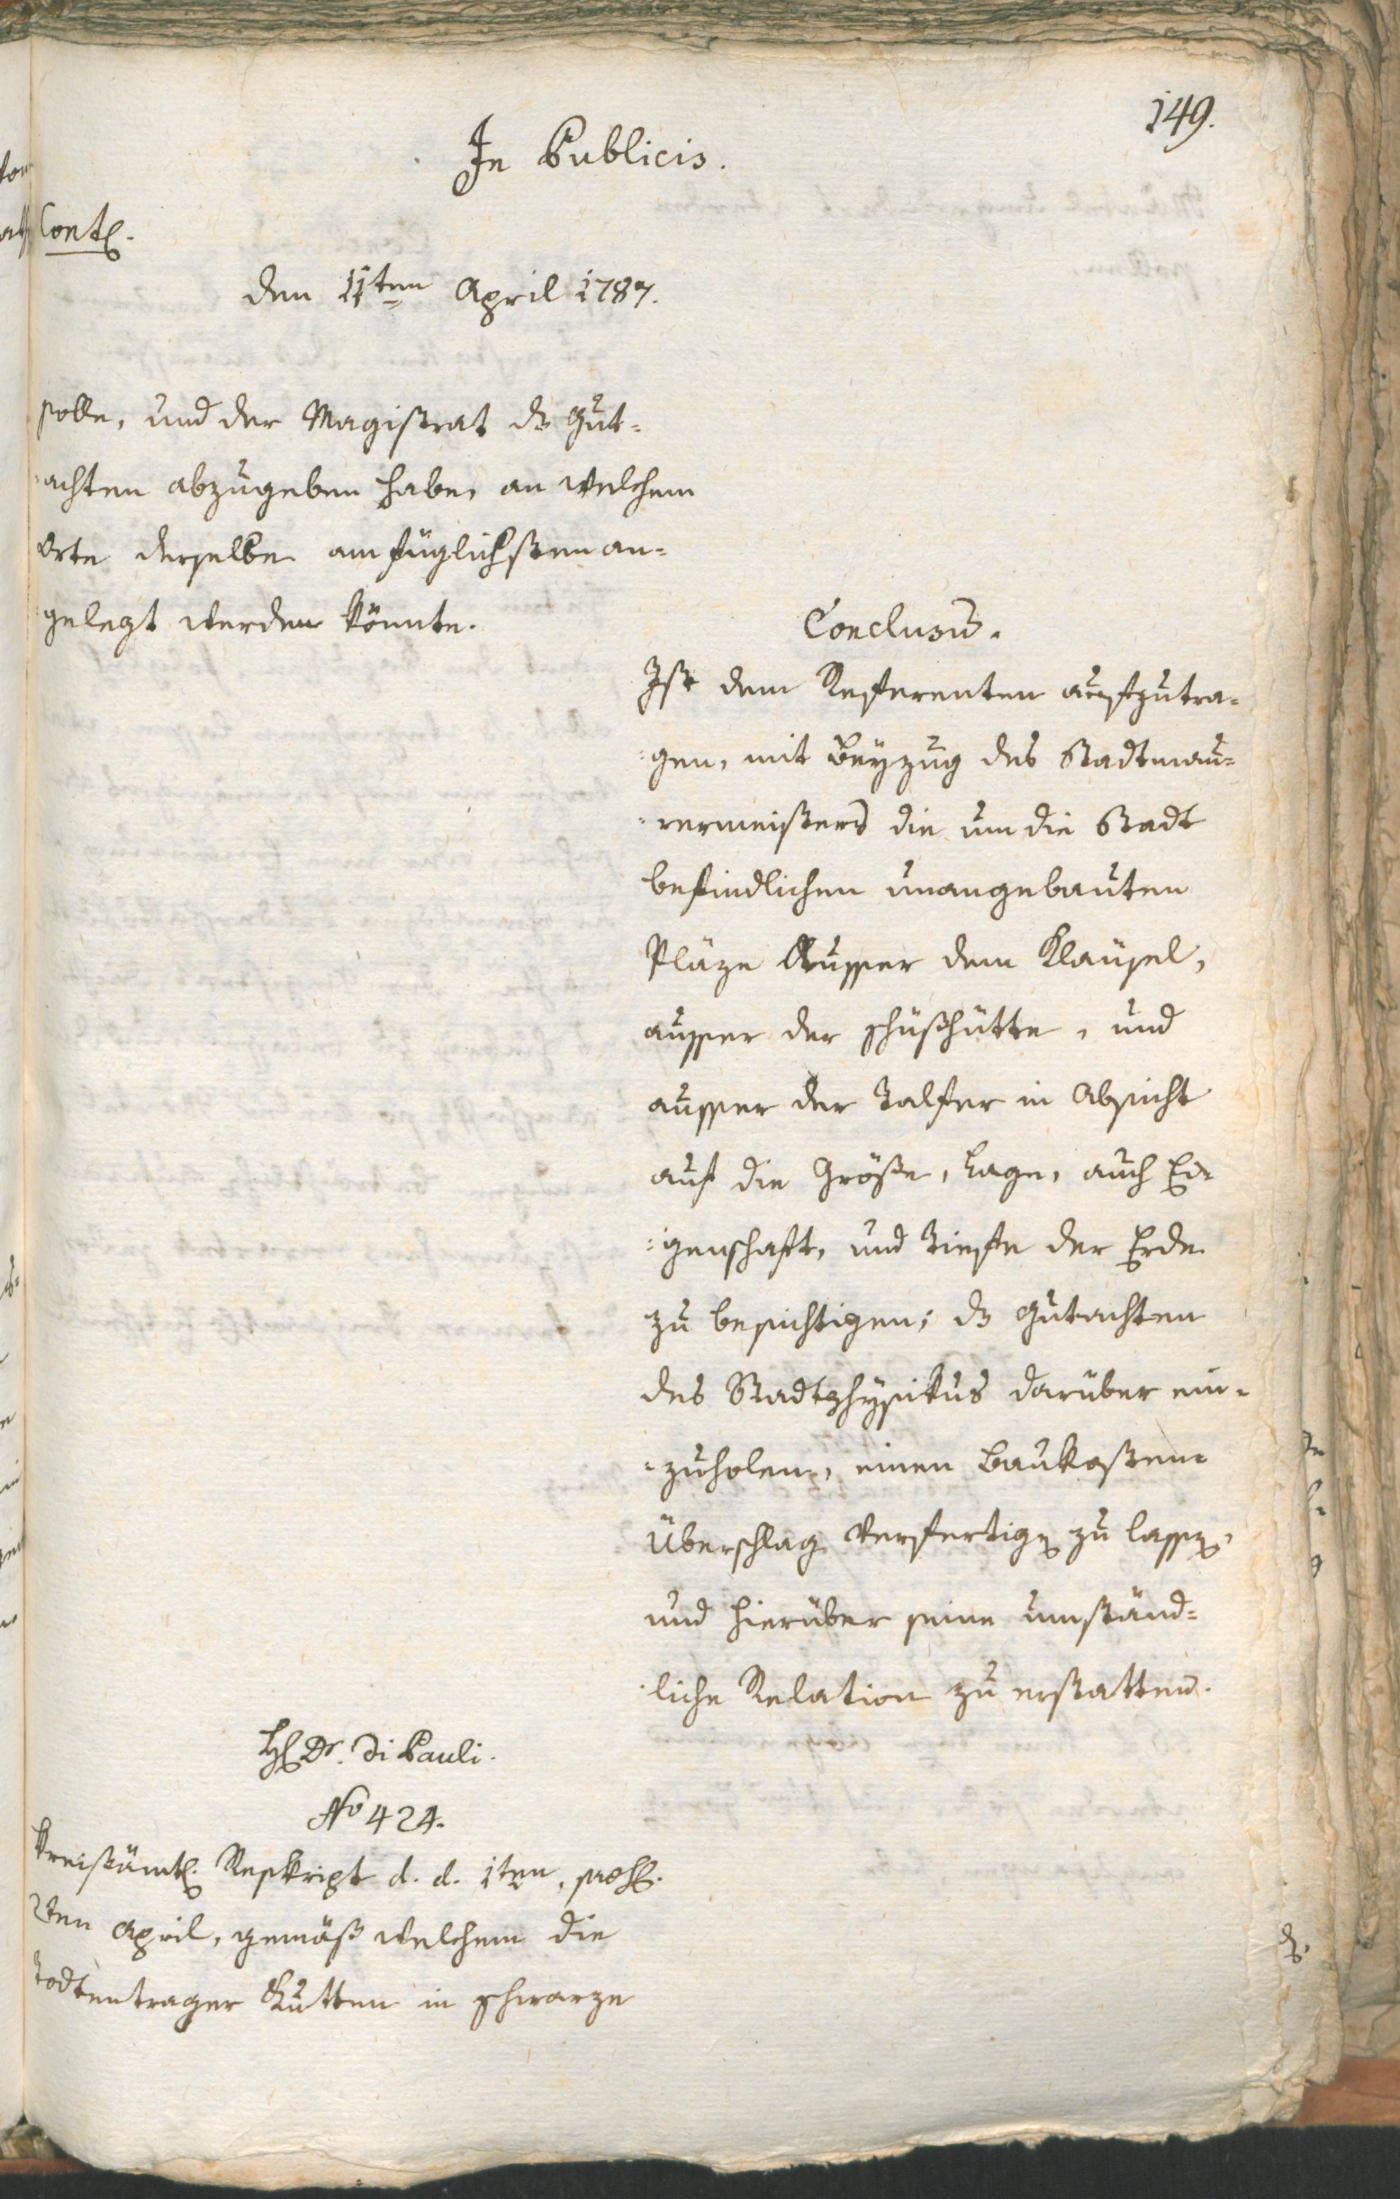 149.
In Publicis.
Cont.
den 11ten April 1787.
solle, und der Magistrat ds Gut=
achten abzugeben habe, an welchem
Orte derselbe am füglichsten an=
gelegt werden könnte.
Conclusum.
Ist dem Referenten aufzutra=
gen, mit Beyzug des Stadtmau=
rermeisters die um die Stadt
befindlichen unangebauten
Pläze ausser dem Kläusel,
ausser der schüßhütte, und
ausser der Talfer in Absicht
auf die Größe, Lage, auch Ei=
genschaft, und Tiefe der Erde
zu besichtigen; ds Gutachten
des Stadtphysikus darüber ein=
=zuholen, einen Baukosten=
Überschlag verfertigen zu lassen,
und hierüber seine umständ=
liche Relation zu erstatten.
H Dr. Di Pauli.
No 424.
Kreisämtl. Reskript d. d. 1ten, 
April, gemäß welchem die
Todtentrager Kutten in schwarze